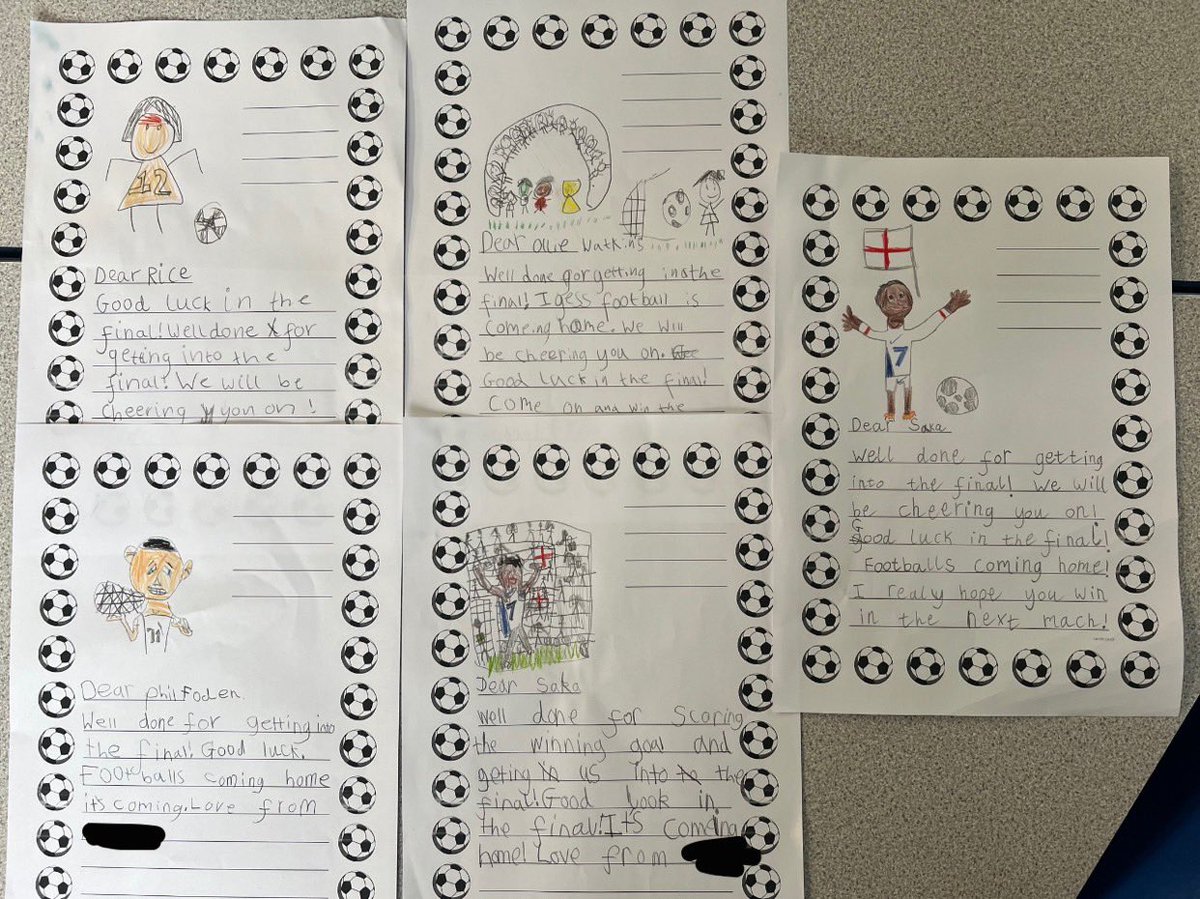 12
Dear Rice
Good luck in the
final! Well done X for
getting into the
final! We will be
cheering you on!
Dear Ollie Watkins
Well done gor getting into the
final! I gess football is
comeing home. We will
be cheering you on.
Good luck in the final!
Come on and win the
7
Dear Saka
Well done for getting
into the final! We will
be cheering you on!
Good luck in the final!
Footballs coming home!
I realy hope you win
in the next mach!
11
Dear phil Foden.
Well done for getting into
the final! Good luck.
Footballs coming home
it's coming. Love from
7
Dear Saka
Well done for scoring
the winning goal and
geting us into the
final! Good look in
the final! It's comeing
home! Love from